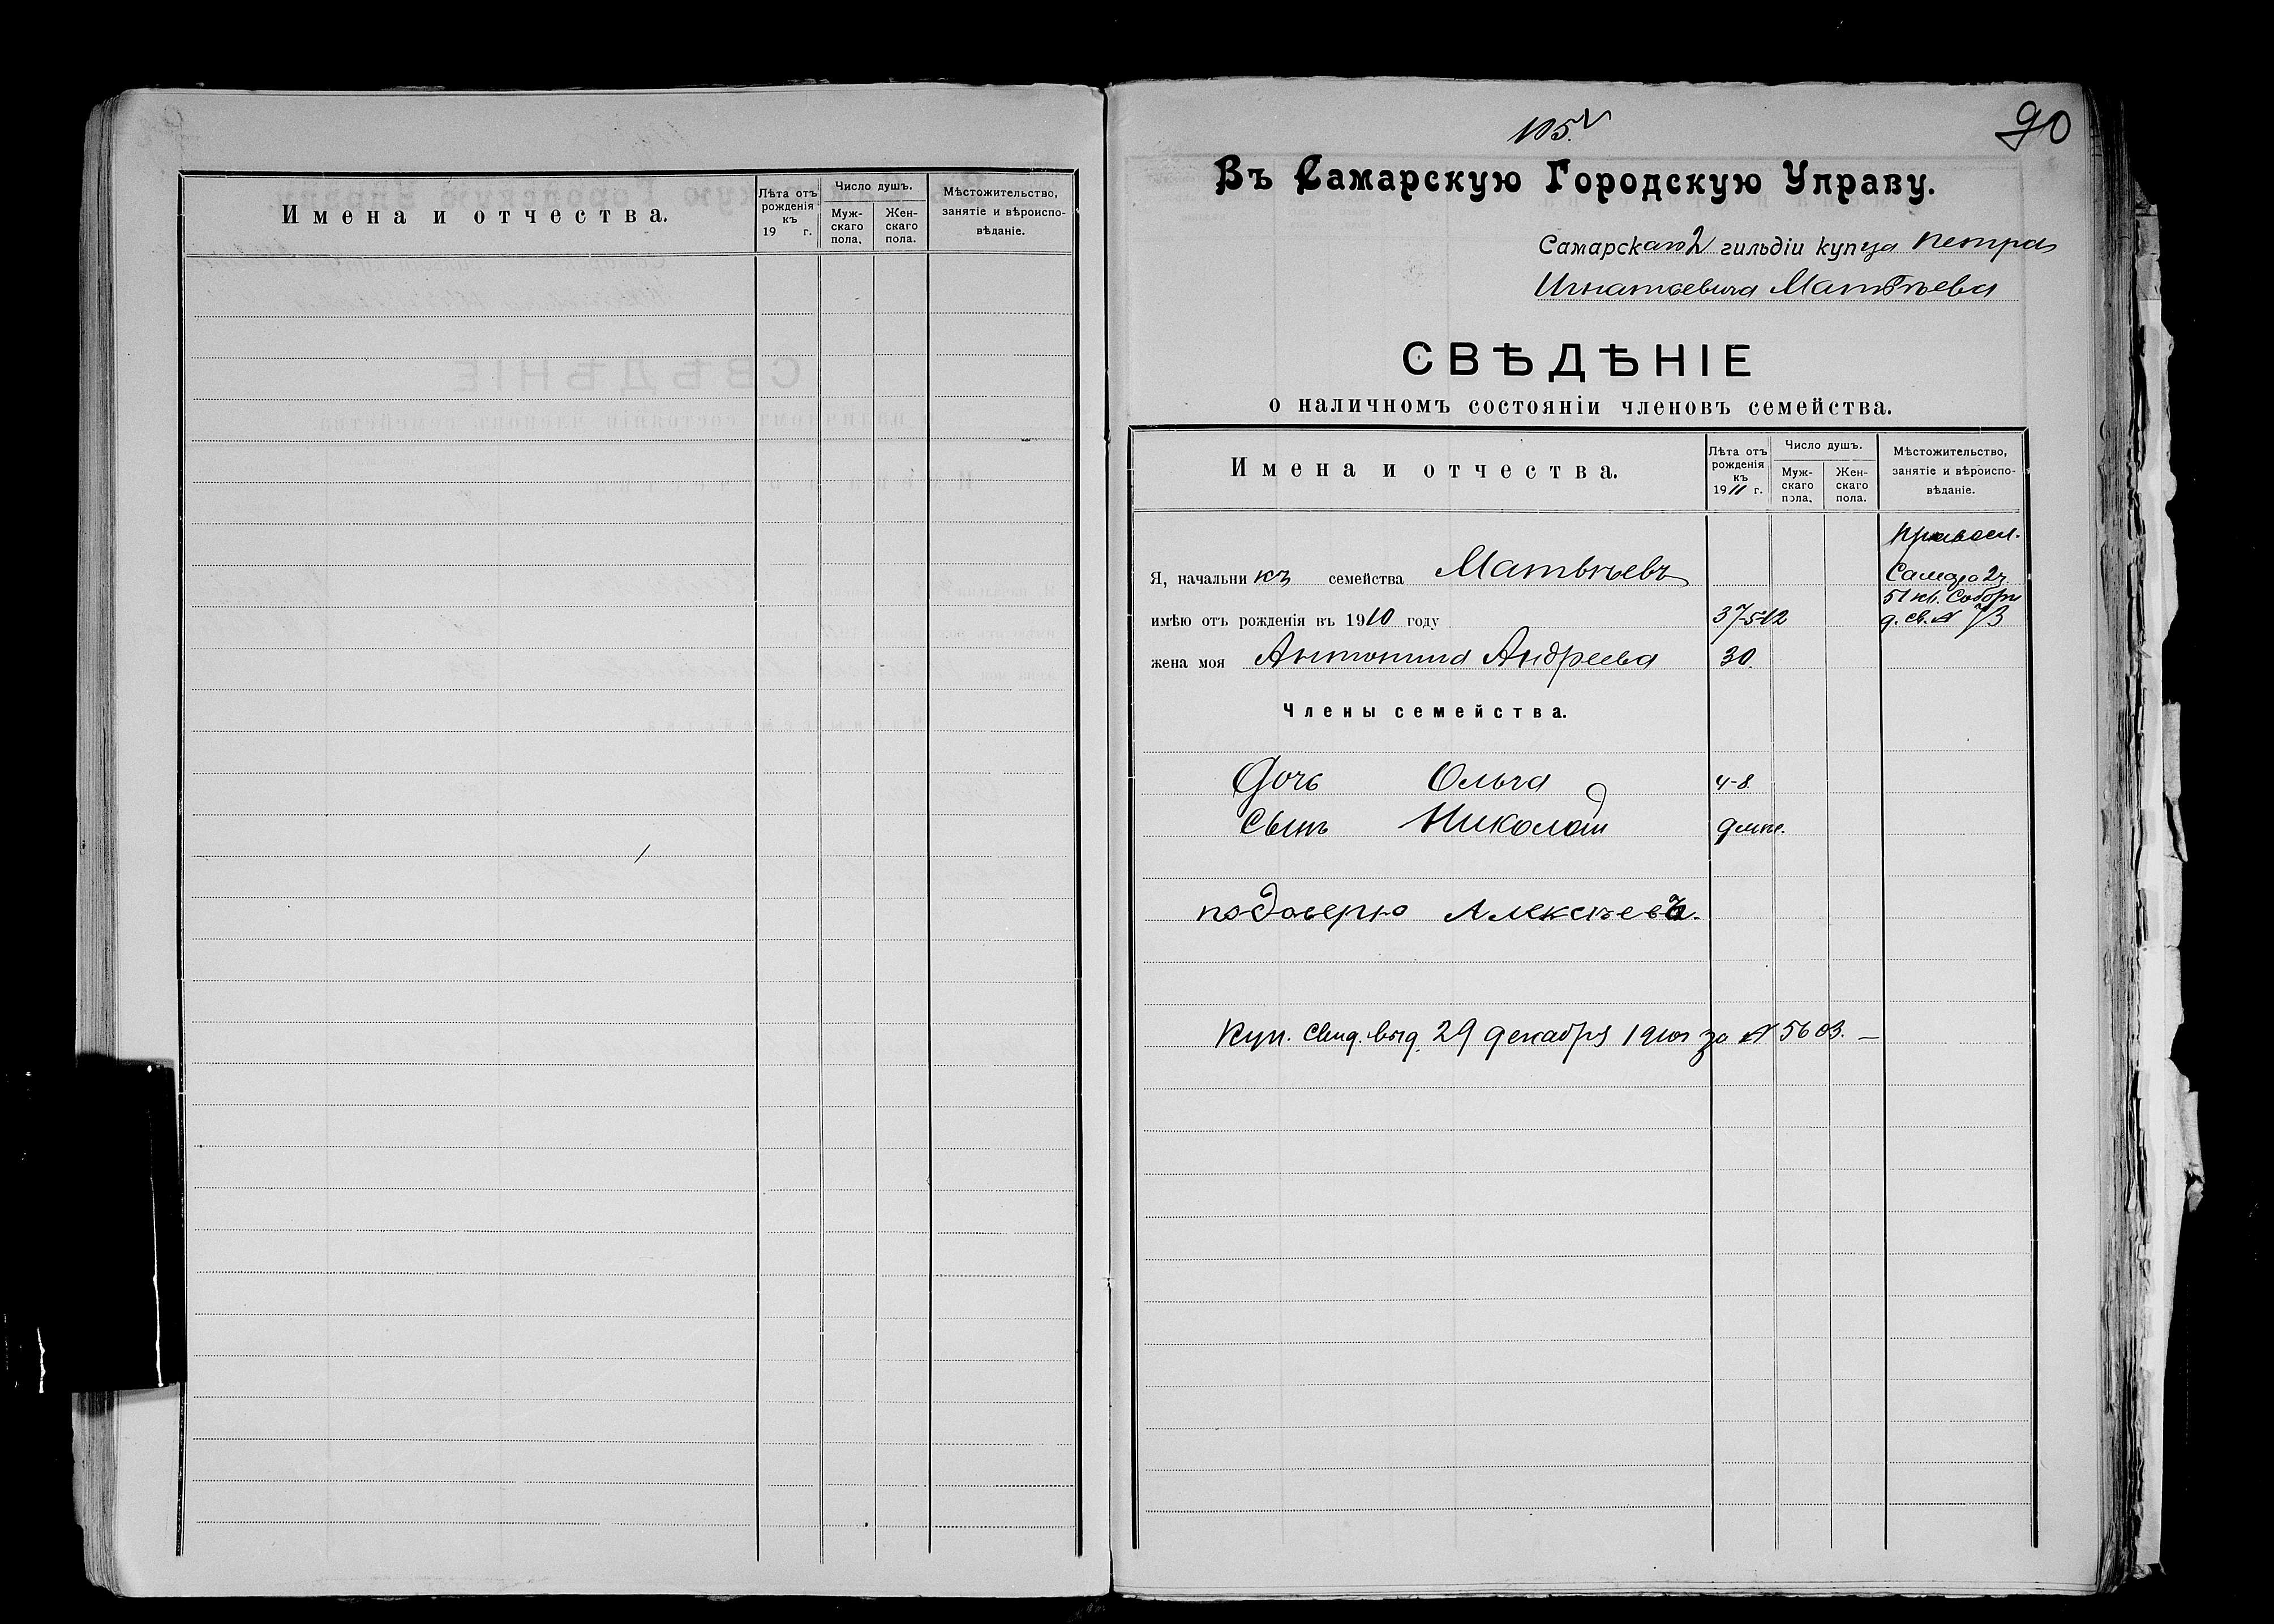 Имена и отчества.
Лѣта отъ рожденія къ 19 г.
Число душъ.
Муж-скаго пола.
Жен-скаго пола.
Мѣстожительство, занятіе и вѣроиспо-вѣданіе.
105.
90
Въ Самарскую Городскую Управу.
Самарскаго 2 гильдіи купца Петра
Игнатьевича Матвѣева
СВѢДѢНІЕ
о наличномъ состояніи членовъ семейства.
Имена и отчества.
Лѣта отъ рожденія къ 1911 г.
Число душъ.
Муж-скаго пола.
Жен-скаго пола.
Мѣстожительство, занятіе и вѣроиспо-вѣданіе.
Правосл.
Я, начальникъ семейства Матвѣевъ
Самара 2ч.
51 кв. Соборн
имѣю отъ рожденія въ 1910 году
д. св. № 73
жена моя Антонина Андреева 30.
Члены семейства.
Дочь Ольга 4-8
Сынъ Николай
по доверию Алексѣевъ.
Куп. Свид. выд. 29 декабря 1910г за № 5603. —